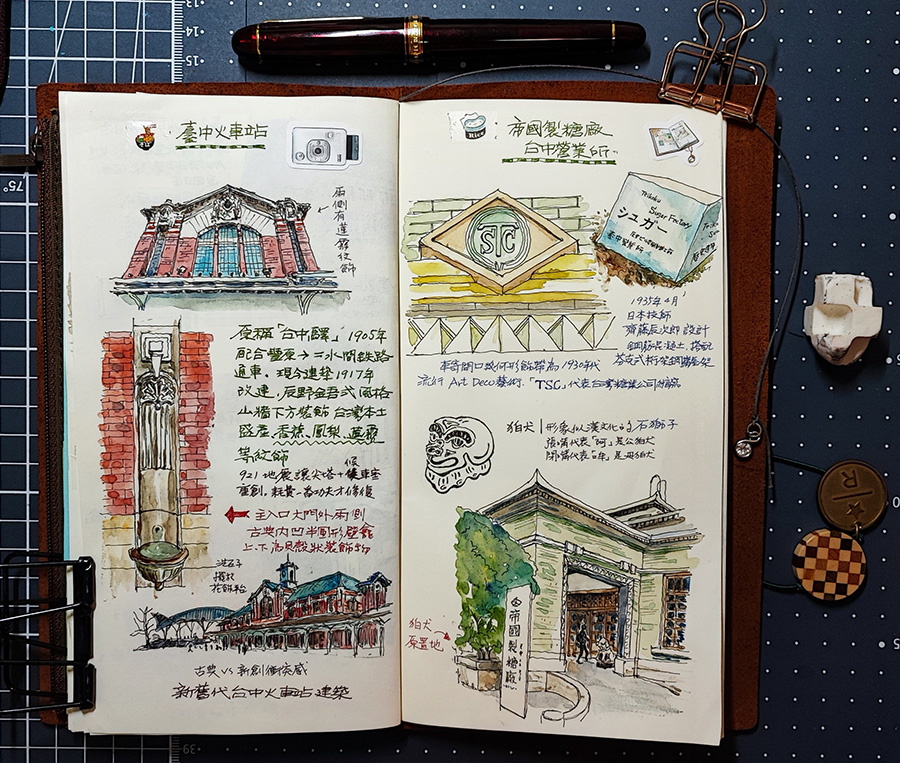 臺中火車站
兩側有蓮霧紋飾
舊稱「台中驛」1905年
配合豐原→二水間鐵路
通車,現今建築1917年
改建,辰野金吾式風格
山牆下方裝飾台灣本土
盛產,香蕉,鳳梨,蓮霧
等紋飾
921地震讓尖塔+候車室
重創,耗費一番功夫才修復
主入口大門外兩側
古典內凹半圓形壁龕
上、下為貝殼狀裝飾
洗石子
花飾
古典VS新創衝突感
新舊代台中火車站建築
Rice
帝國製糖廠
台中營業所
TSC
Teikoku
Sugar Factory
シュガー
1935年4月
日本技師
齋藤辰次郎設計
鋼筋混凝土,搭配
芬式桁架鋼鐵屋架
車寄開口幾何形飾帶為1930年代
流行Art Deco藝術,「TSC」代表台灣糖業公司
狛犬
形象似漢文化的石獅子
張嘴代表「阿」是公狛犬
閉嘴代表「吽」是母狛犬
狛犬
原置地
帝國製糖廠
R
15
14
75°
39